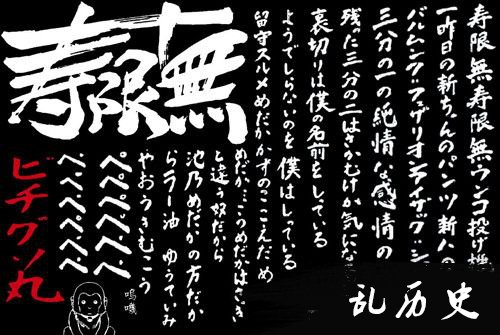 寿限無
寿限無寿限無ウンコ投げ機
一昨日の新ちゃんのパンツ新八の
バルムンク=フェザリオンアイザック=シ
三分の一の純情な感情の
残った三分の二はさかむけが気にな
裏切りは僕の名前をしっている
ようでしらないのを僕はしっている
留守スルメめだかかずのここえだめ
めだか…このめだかはさっき
と違う奴だから
池乃めだかの方だか
らラー油 ゆうていみ
やおうきむこう
ぺぺぺぺぺぺ
ぺぺぺぺぺぺ
ビチグソ丸
乱历史